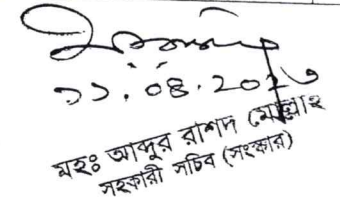 ১১.০৪.২০২৩
মহঃ আব্দুর রাশদ মোল্লাহ
সহকারী সচিব (সংস্কার)